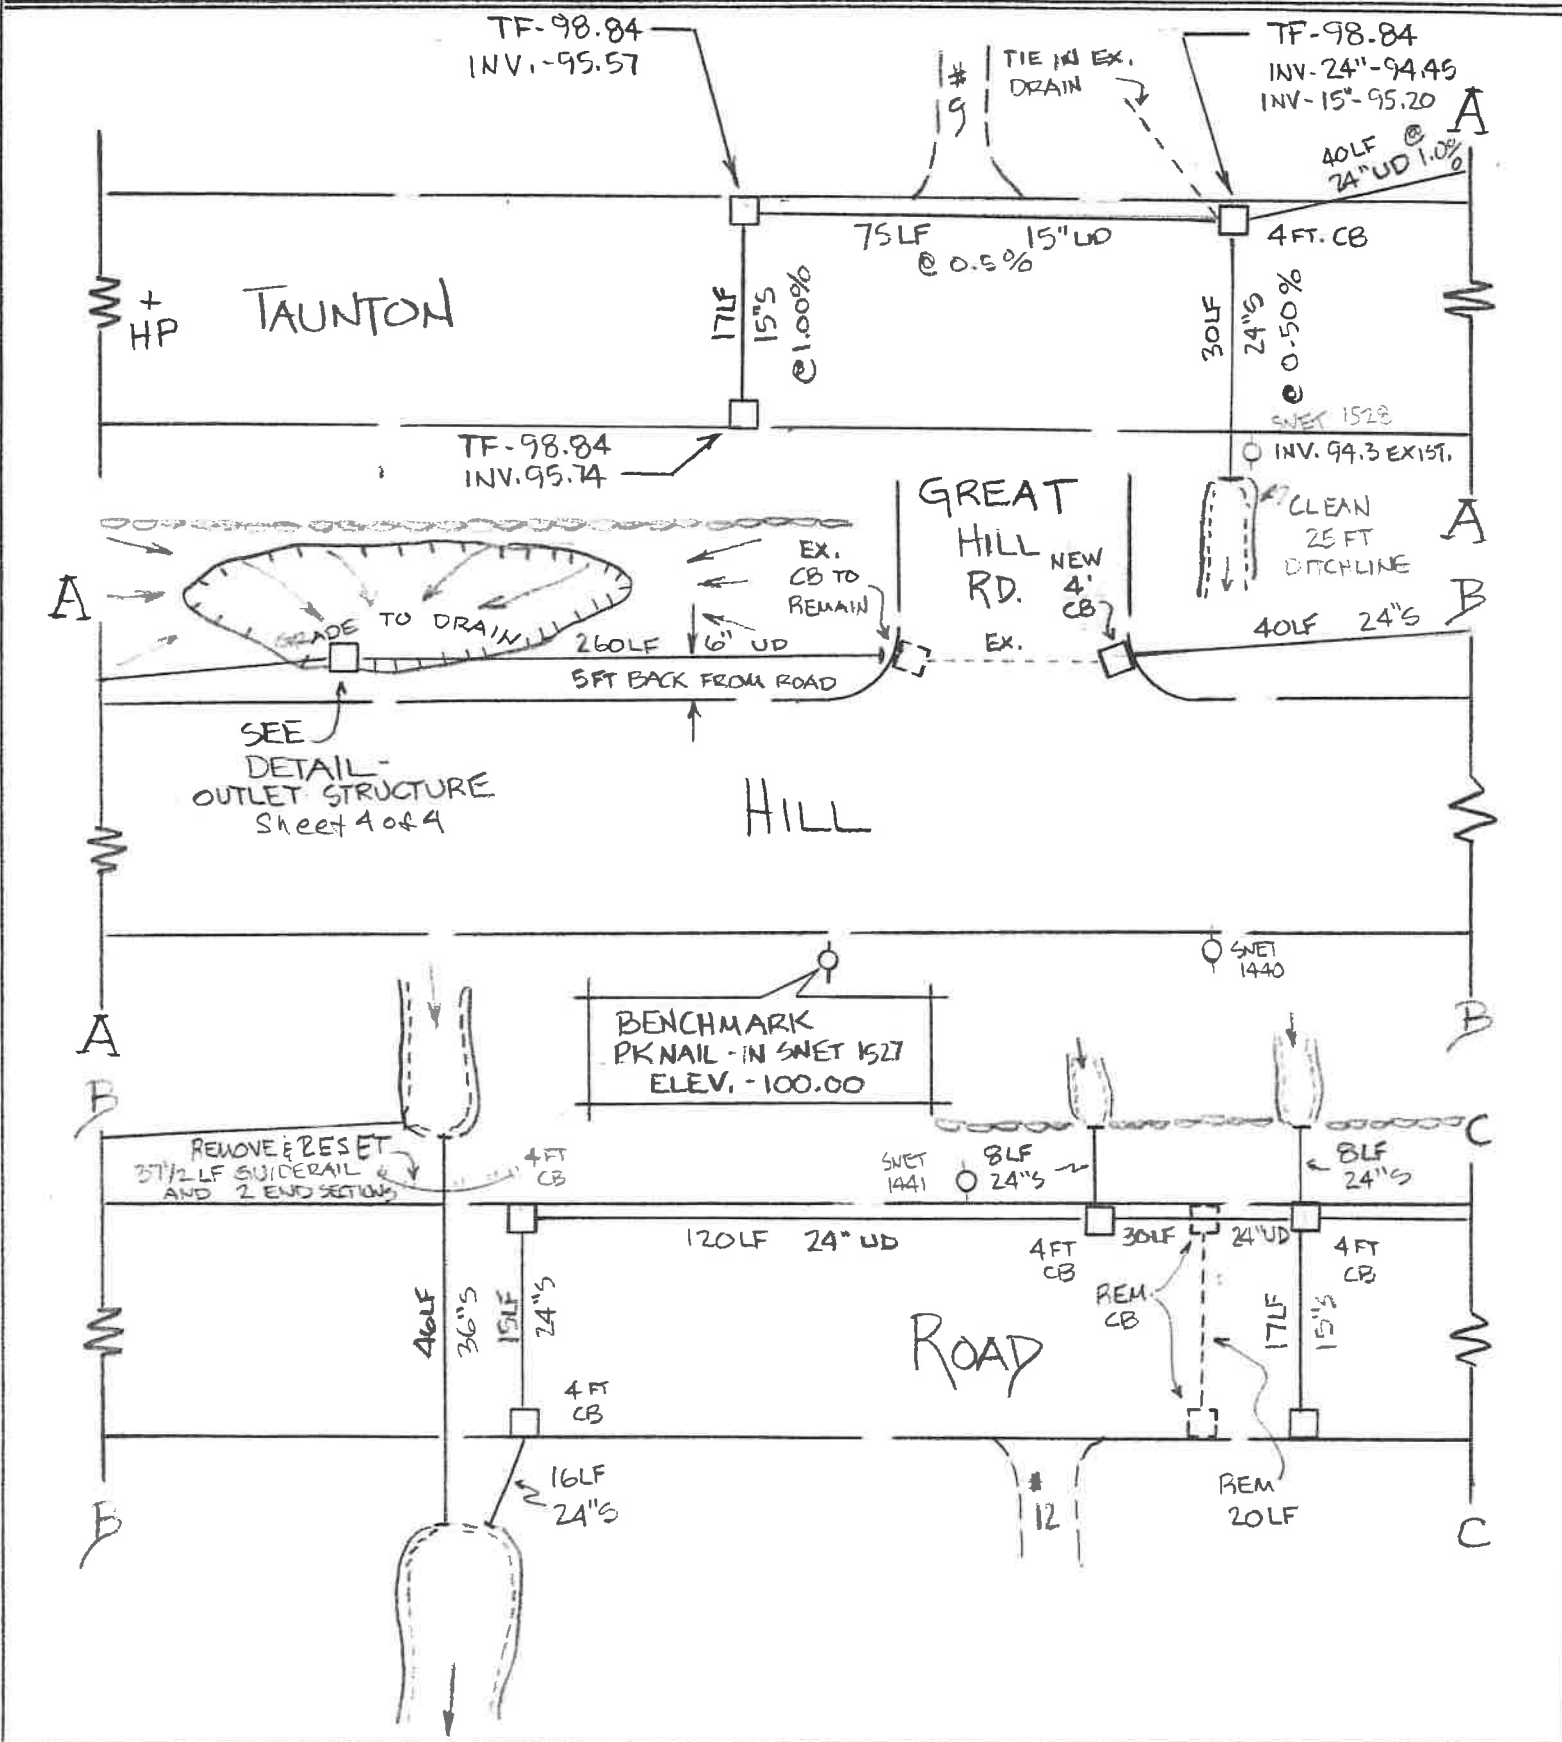 TF-98.84
INV.-95.57
#
9
TIE IN EX.
DRAIN
TF-98.84
INV-24"-94.45
INV-15"-95.20
A
40LF @
24"UD 1.0%
75LF 15"UD
@ 0.5%
4FT. CB
+
HP
TAUNTON
17LF
15"S
@1.00%
30LF
24"S
@ 0.50%
SNET 1528
INV. 94.3 EXIST.
TF-98.84
INV.95.74
GREAT
HILL
RD.
CLEAN
25 FT
DITCHLINE
A
A
EX.
CB TO
REMAIN
NEW
4'
CB
B
GRADE TO DRAIN
260LF 6" UD
5FT BACK FROM ROAD
EX.
40LF 24"S
SEE
DETAIL-
OUTLET STRUCTURE
Sheet 4 of 4
HILL
SNET
1440
BENCHMARK
PK NAIL -IN SNET 1527
ELEV. -100.00
A
B
B
REMOVE & RESET
37 1/2 LF GUIDERAIL
AND 2 END SECTIONS
4FT
CB
SNET
1441
8LF
24"S
8LF
24"S
C
120LF 24" UD
4FT
CB
30LF 24"UD
4FT
CB
46LF
36"S
15LF
24"S
REM.
CB
17LF
15"S
ROAD
4 FT
CB
16LF
24"S
#
12
REM
20LF
B
C